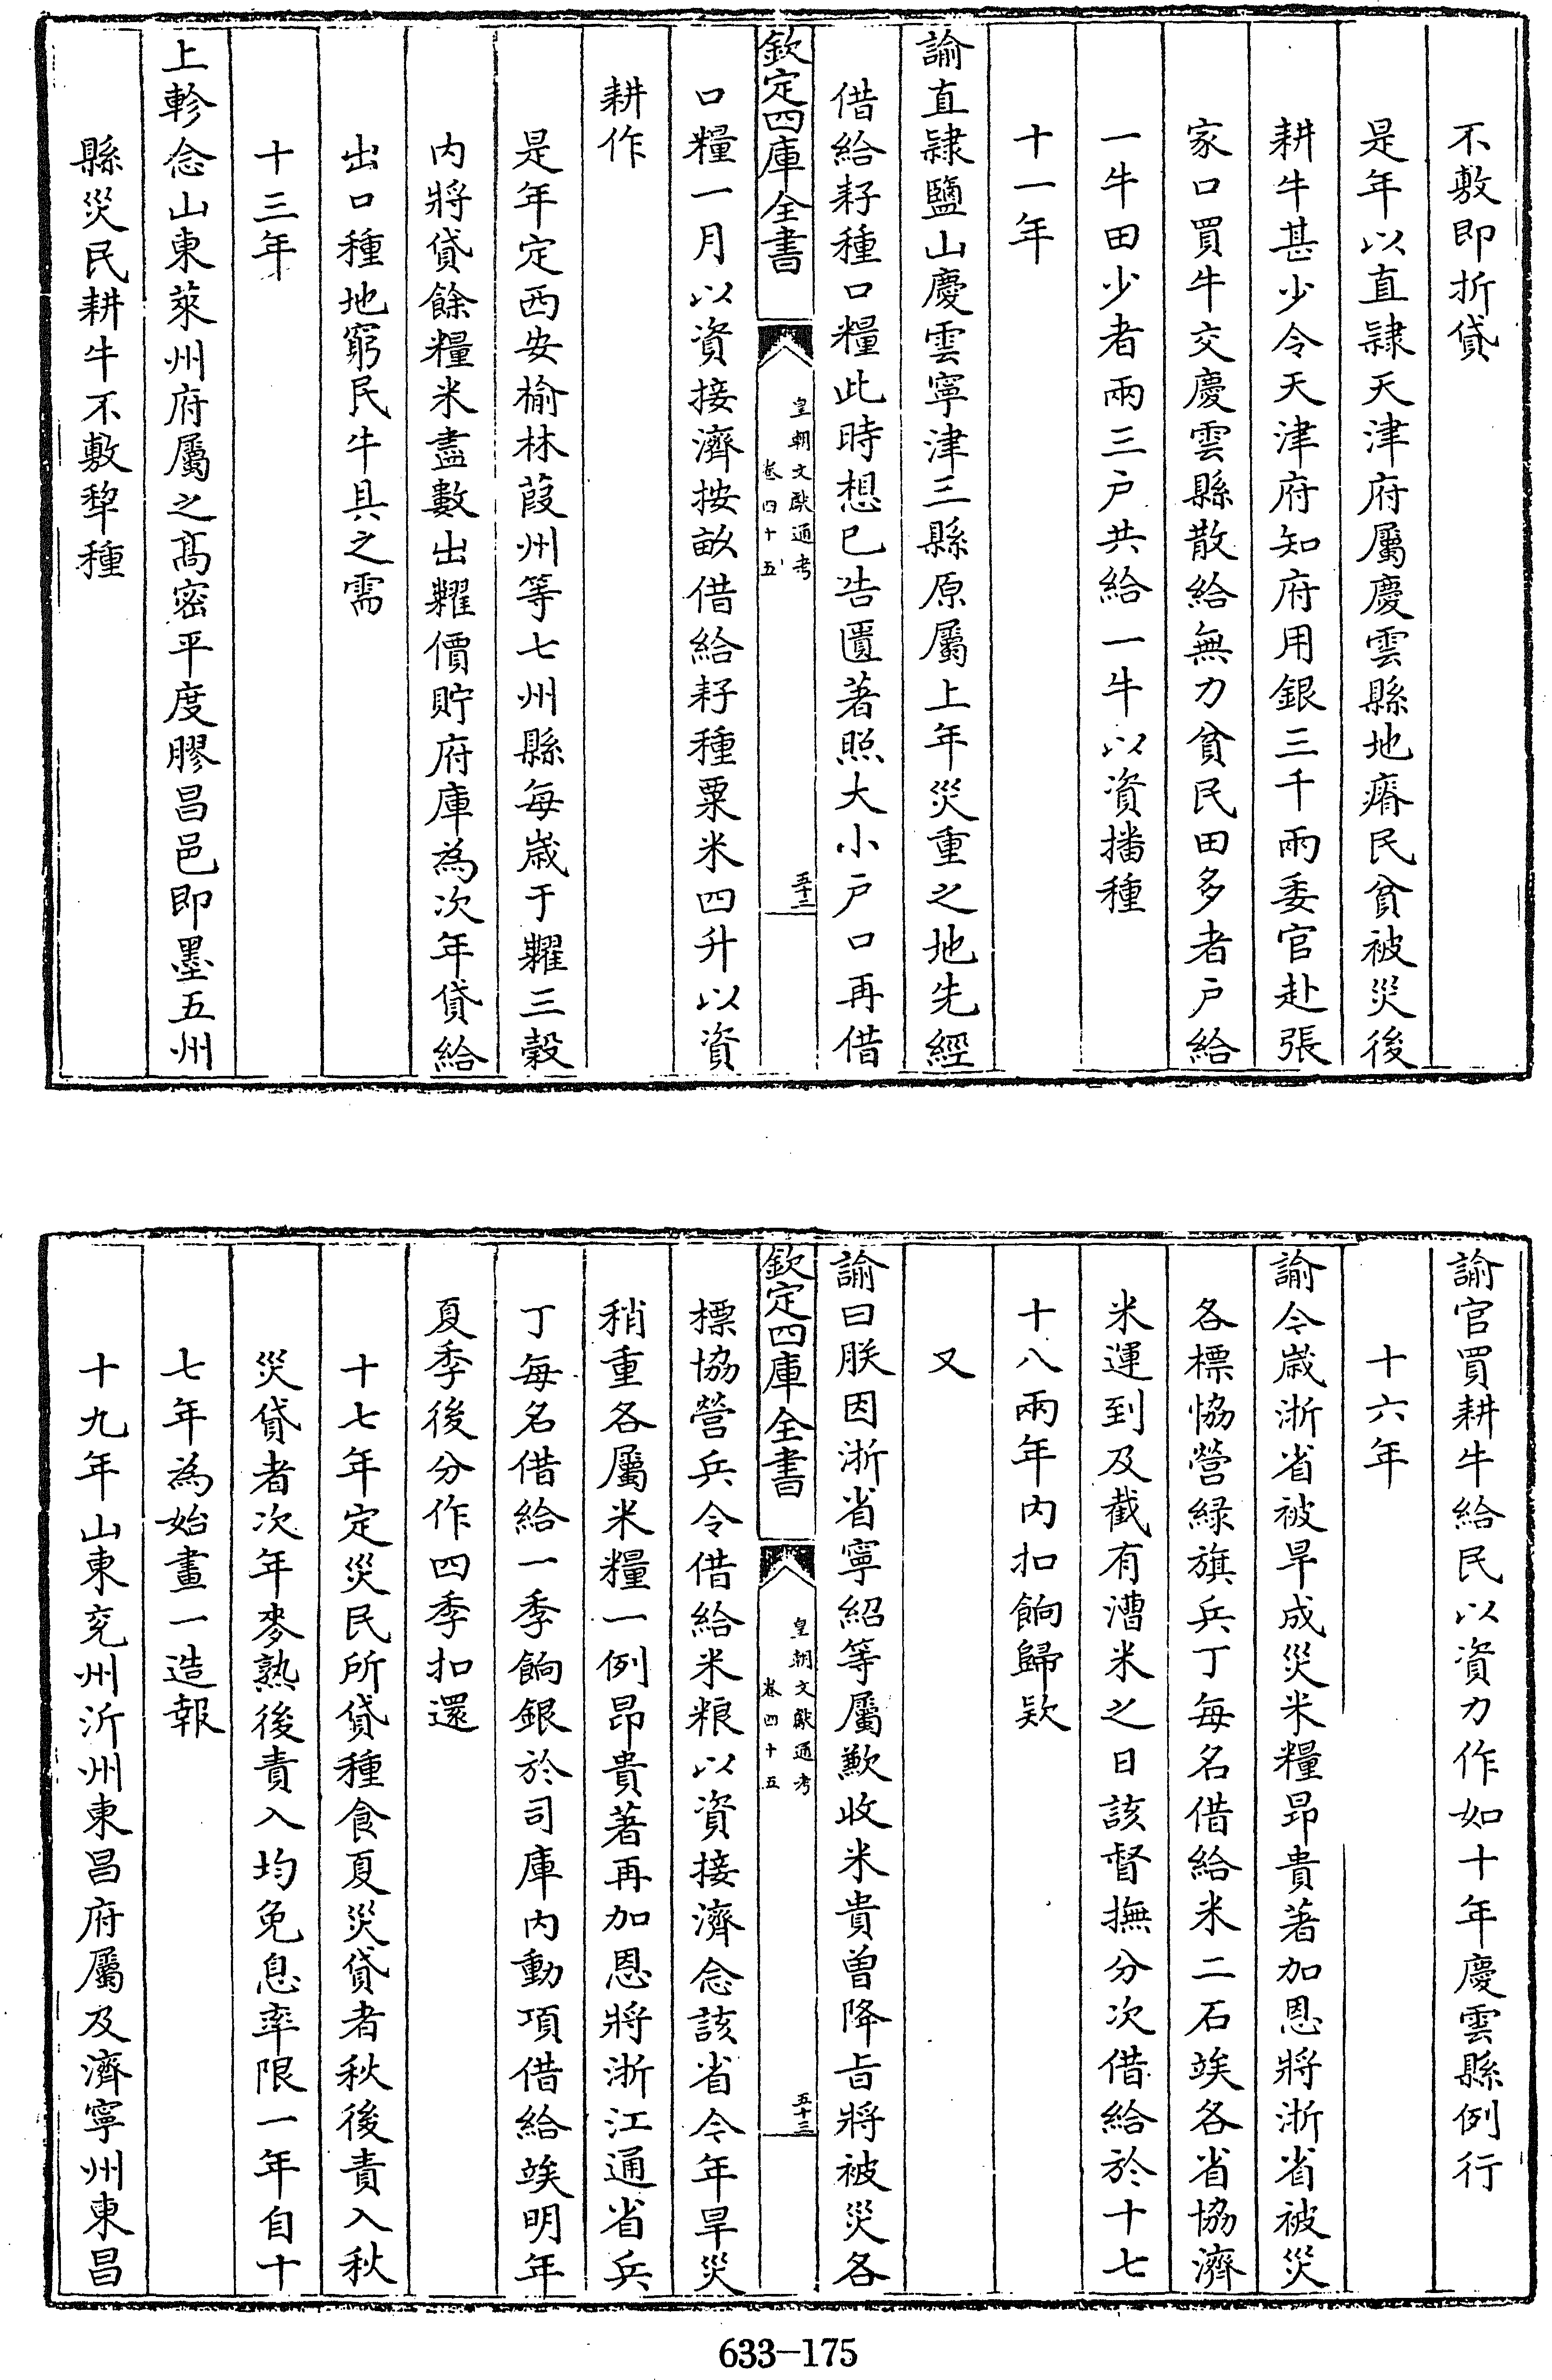 不敷即折貸
是年以直隷天津府屬慶雲縣地瘠民貧被災後
耕牛甚少令天津府知府用銀三千兩委官赴張
家口買牛交慶雲縣散給無力貧民田多者户給
一牛田少者兩三户共給一牛以資播種
十一年
諭直隷鹽山慶雲寧津三縣原屬上年災重之地先經
借給籽種口糧此時想已告匱著照大小户口再借
欽定四庫全書
皇朝文獻通考
卷四十五
五十三
口糧一月以資接濟按畝借給籽種粟米四升以資
耕作
是年定西安榆林葭州等七州縣每歲于糶三榖
内將貸餘糧米盡數出糶價貯府庫為次年貸給
出口種地窮民牛具之需
十三年
上軫念山東萊州府屬之髙密平度膠昌邑即墨五州
縣災民耕牛不敷犂種
諭官買耕牛給民以資力作如十年慶雲縣例行
十六年
諭今歲浙省被旱成災米糧昂貴著加恩將浙省被災
各標協營緑旗兵丁每名借給米二石竢各省協濟
米運到及截有漕米之日該督撫分次借給於十七
十八兩年内扣餉歸欵
又
諭曰朕因浙省寧紹等屬歉收米貴曽降旨將被災各
欽定四庫全書
皇朝文獻通考
卷四十五
五十三
標協營兵令借給米粮以資接濟念該省今年旱災
稍重各屬米糧一例昂貴著再加恩將浙江通省兵
丁每名借給一季餉銀於司庫内動項借給竢明年
夏季後分作四季扣還
十七年定災民所貸種食夏災貸者秋後責入秋
災貸者次年麥熟後責入均免息率限一年自十
七年為始畫一造報
十九年山東兖州沂州東昌府屬及濟寧州東昌
633-175